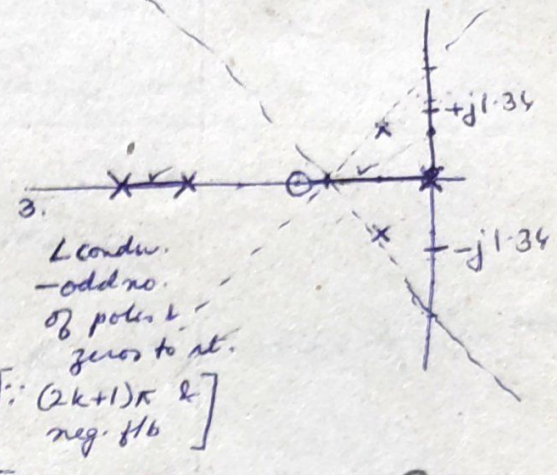 +j1.34
3.
∠ condn.
-j1.34
- odd no.
of poles &
zeros to rt.
[∵ (2k+1)π &
neg. f/b ]